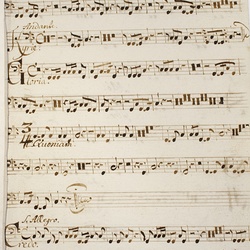 Andante
Kyrie.
Gloria
Quoniam
Allegro.
Credo.